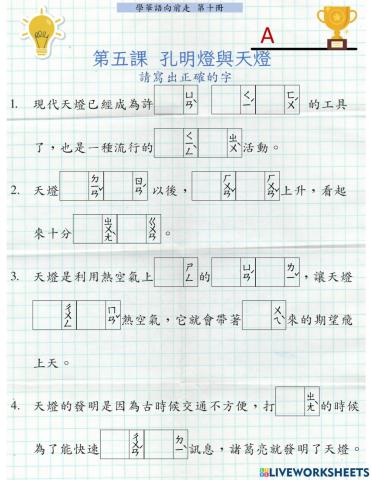 學華語向前走 第十冊
A
第五課 孔明燈與天燈
請寫出正確的字
1. 現代天燈已經成為許 ㄩㄢˋ ㄑㄧˊ ㄈㄨˊ 的工具
了，也是一種流行的 ㄑㄧㄥˋ ㄓㄨˋ 活動。
2. 天燈 ㄉㄧㄢˇ ㄖㄢˊ 以後， ㄏㄨㄢˇ ㄏㄨㄢˇ 上升，看起
來十分 ㄓㄨㄤˋ ㄍㄨㄢ 。
3. 天燈是利用熱空氣上 ㄕㄥ 的 ㄩㄢˊ ㄌㄧˇ ，讓天燈
ㄔㄨㄥ ㄇㄢˇ 熱空氣，它就會帶著 ㄨㄟˋ 來的期望飛
上天。
4. 天燈的發明是因為古時候交通不方便，打 ㄓㄤˋ 的時候
為了能快速 ㄔㄨㄢˊ ㄉㄧˋ 訊息，諸葛亮就發明了天燈。
LIVEWORKSHEETS